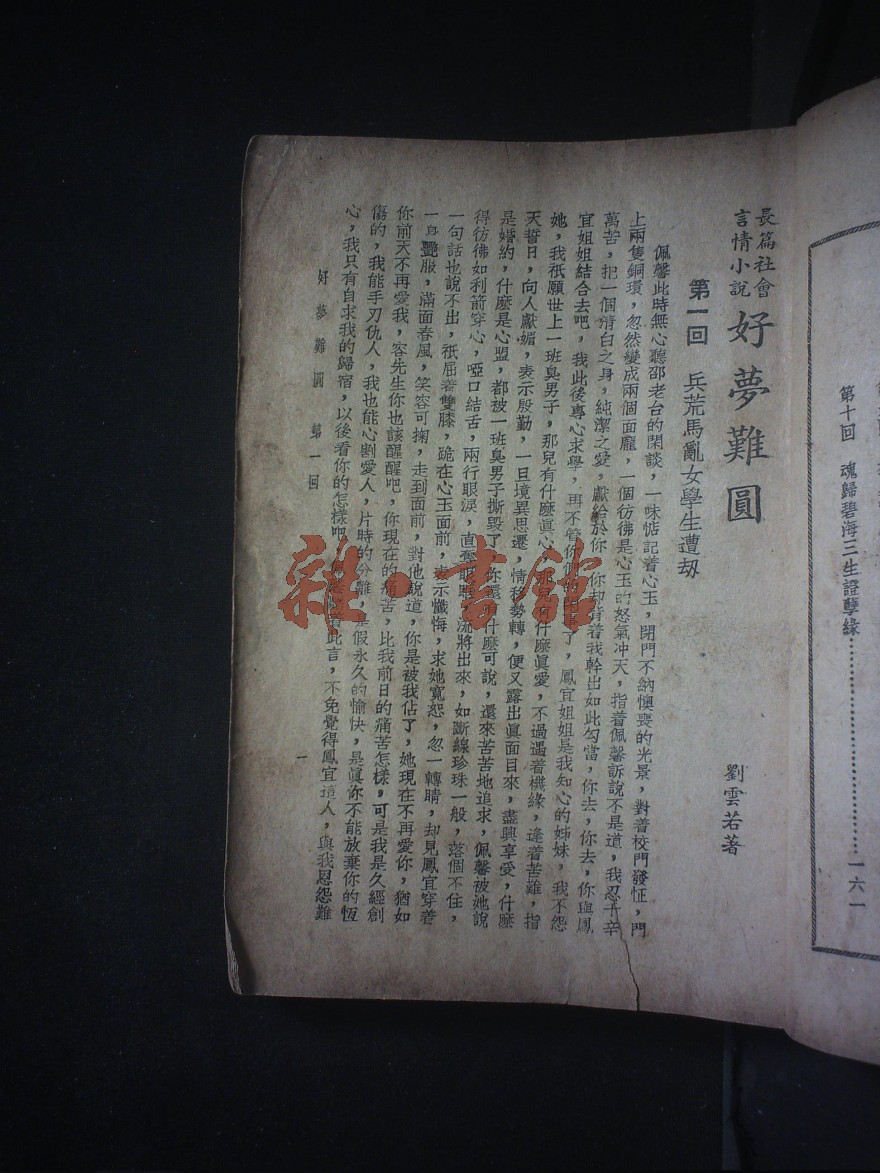 第十回　魂歸碧海三生證孽緣……………………一六一
長篇社會
言情小說
好夢難圓
劉雲若著
第一回　兵荒馬亂女學生遭刧
佩馨此時無心聽邵老台的閑談，一味惦記着心玉，閉門不納懊喪的光景，對着校門發怔，門
上兩隻銅環，忽然變成兩個面龐，一個彷彿是心玉的怒氣冲天，指着佩馨訴說不是道，我忍千辛
萬苦，把一個清白之身，純潔之愛，獻給於你，你却背着我幹出如此勾當，你去，你去，你與鳳
宜姐姐結合去吧，我此後專心求學，再不管你們的了，鳳宜姐姐是我知心的姊妹，我不怨
她，我祇願世上一班臭男子，那兒有什麽眞心，那兒有什麽眞愛，不過遇着機緣，逢着苦難，指
天誓日，向人獻媚，表示殷勤，一旦境異思遷，情移勢轉，便又露出眞面目來，盡興享受，什麽
是婚約，什麽是心盟，都被一班臭男子撕毀了，你還有什麽可說，還來苦苦地追求，佩馨被她說
得彷彿如利箭穿心，啞口結舌，兩行眼淚，直奪眼眶，流將出來，如斷線珍珠一般，落個不住，
一句話也說不出，祇屈着雙膝，跪在心玉面前，表示懺悔，求她寬恕，忽一轉睛，却見鳳宜穿着
一身艷服，滿面春風，笑容可掬，走到面前，對他說道，你是被我佔了，她現在不再愛你，猶如
你前天不再愛我，容先生你也該醒醒吧，你現在的痛苦，比我前日的痛苦怎樣，可是我是久經創
傷的，我能手刃仇人，我也能心割愛人，片時的分離，是假永久的愉快，是眞你不能放棄你的恆
心，我只有自求我的歸宿，以後看你的怎樣吧，此言，不免覺得鳳宜這人，與我恩怨難
好夢難圓　第一回
一
雜·書館